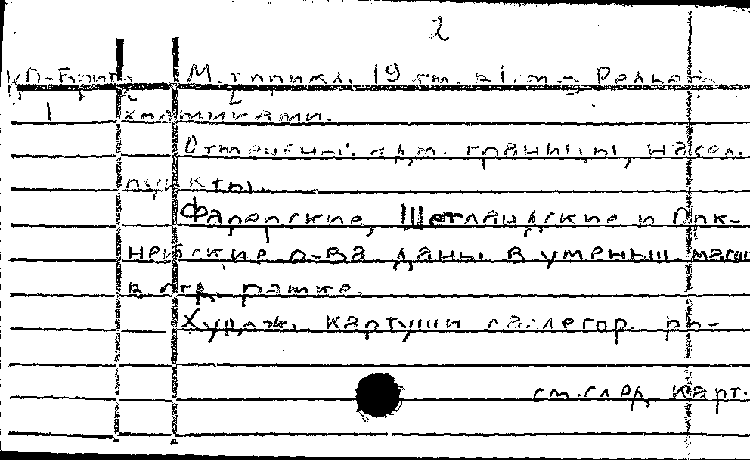 2
КО-Брит М. 19 см. в 1. m-б Рельеф
1 холмиками.
Отмечены: адм. границы, насел.
пункты.
Фарерские, Шетландские и Орк-
нейские о-ва даны в уменьш. масш
в отд. рамке.
Худож. картуши с аллегор. ри-
см. след. карт.